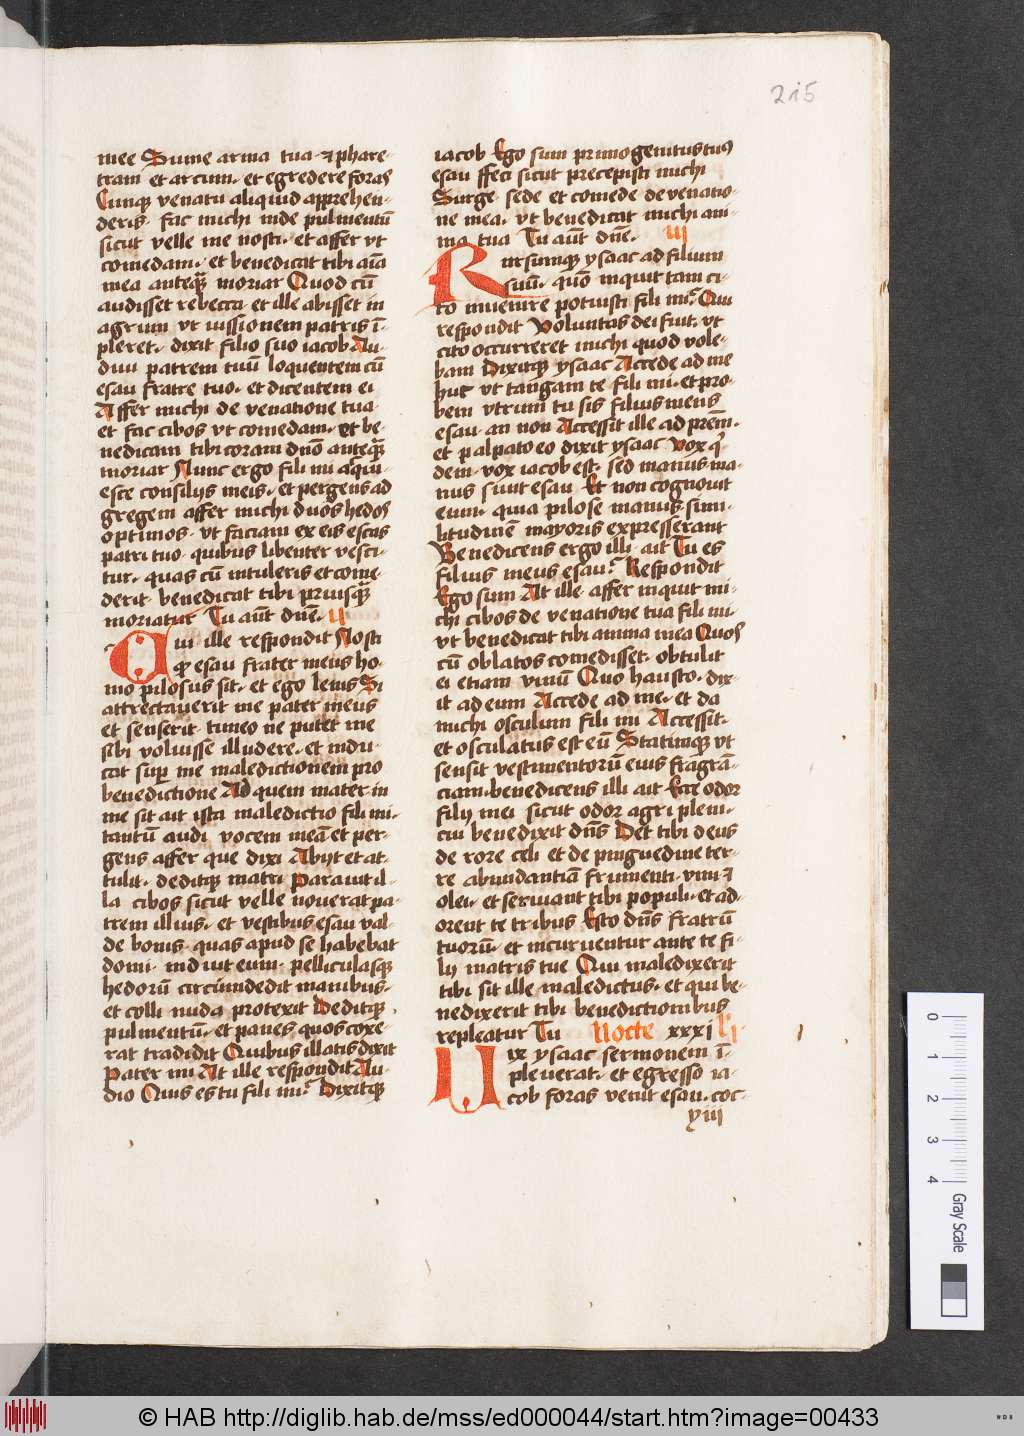 215
mee Sume arma tua ⁊ phare-
tram et arcum. et egredere foras
Cumqꝫ venatu aliquid apprehen-
deris. fac michi inde pulmentū
sicut velle me nosti. et affer vt
comedam. et benedicat tibi aīa
mea anteqꝫ moriar Quod cū
audisset rebecca et ille abisset in
agrum vt iussionem patris ī-
pleret. dixit filio suo iacob Au-
diui patrem tuū loquentem cū
esau fratre tuo. et dicentem ei
Affer michi de venatione tua
et fac cibos vt comedam. et be-
nedicam tibi coram dn̄o anteqꝫ
moriar Nunc ergo fili mi acqui-
esce consilijs meis. et pergens ad
gregem affer michi duos hedos
optimos. vt faciam ex eis escas
patri tuo. quibus libenter vesci-
tur. quas cū intuleris et come-
derit. benedicat tibi priusqꝫ
moriatur Tu aūt dn̄e. ii
Cui ille respondit Nosti
ꝙ esau frater meus ho-
mo pilosus sit. et ego lenis Si
attrectauerit me pater meus
et senserit. timeo ne putet me
sibi voluisse illudere. et indu-
cat suꝑ me maledictionem pro
benedictione Ad quem mater in
me sit ait ista maledictio fili mi.
tantū audi vocem meā et per-
gens affer que dixi Abijt et at-
tulit. deditqꝫ matri Parauit il-
la cibos sicut velle nouerat pa-
trem illius. et vestibus esau val-
de bonis. quas apud se habebat
domi. induit eum. pelliculasqꝫ
hedorū circūmdedit manibus.
et colli nuda protexit Deditqꝫ
pulmentū. et panes quos coxe-
rat tradidit Quibus illatis dixit
Pater mi At ille respondit Au-
dio Quis es tu fili mi? Dixitqꝫ
iacob Ego sum primogenitus tuꝰ
esau ffeci sicut precepisti michi
Surge sede et comede de venatio-
ne mea. vt benedicat michi ani-
ma tua Tu aūt dn̄e. iii
Rursumqꝫ ysaac ad filium
suū. quō inquit tam ci-
to inuenire potuisti fili mi? Qui
respondit Voluntas dei fuit. vt
cito occurreret michi quod vole-
bam Dixitqꝫ ysaac Accede ad me
huc vt tangam te fili mi. et pro-
bem vtrum tu sis filius meus
esau. an non Accessit ille ad prēm.
et palpato eo dixit ysaac Vox q̄-
dem. vox iacob est. sed manus ma-
nus sunt esau Et non cognouit
eum. quia pilose manus. simi-
litudinē mayoris expresserant
Benedicens ergo illi. ait Tu es
filius meus esau? Respondit
Ego sum At ille. affer inquit mi-
chi cibos de venatione tua fili mi.
vt benedicat tibi anima mea Quos
cū oblatos comedisset. obtulit
ei etiam vinū Quo hausto. dix-
it ad eum Accede ad me. et da
michi osculum fili mi Accessit.
et osculatus est eū Statimqꝫ vt
sensit vestimentorū eius fragrā-
ciam. benedicens illi ait Ecce odor
filij mei sicut odor agri pleni.
cui benedixit dn̄s Det tibi deus
de rore celi et de pinguedine ter-
re abundantiā frumenti. vini ⁊
olei. et seruiant tibi populi. et ad-
orent te tribus Esto dn̄s fratrū
tuorū. et incuruentur ante te fi-
lij matris tue Qui maledixerit
tibi sit ille maledictus. et qui be-
nedixerit tibi benedictionibus
repleatur Tu Nocte xxxi l̄ i
Uix ysaac sermonem ī-
pleuerat. et egresso ia-
cob foras venit esau. coc-
yiii
0
1
2
3
4
Gray Scale
© HAB http://diglib.hab.de/mss/ed000044/start.htm?image=00433